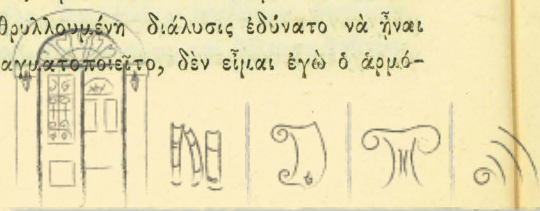 θρυλλουμένη διάλυσις ἐδύνατο νὰ ἦναι
αγματοποιεῖτο, δὲν εἶμαι ἐγὼ ὁ ἁρμό-